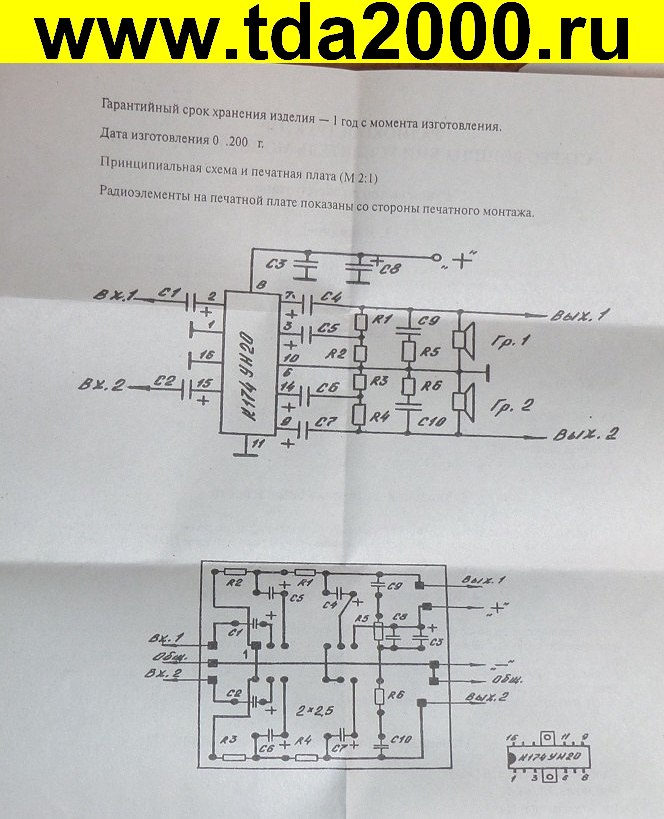 www.tda2000.ru
Гарантийный срок хранения изделия — 1 год с момента изготовления.
Дата изготовления 0 .200 г.
Принципиальная схема и печатная плата (М 2:1)
Радиоэлементы на печатной плате показаны со стороны печатного монтажа.
C3 C8 „+"
8
Вх.1 C1 2 7 C4 Вых. 1
+ + R1 C9
1 3 C5 Гр. 1
+ R2 R5
К174УН20
16 10
6
R3 R6
Вх. 2 C2 15 14 C6 Гр. 2
+ + R4 C10
9 C7 Вых. 2
11 +
R2 R1 C9 Вых. 1
+ C5 C4 +
R5 C8 „+"
C1 + + C3
Вх. 1
Общ. 1 „—"
Вх. 2 Общ.
C2 + R6 Вых. 2
2×2,5
+ +
R3 C6 R4 C7 C10
16 11 9
К174УН20
1 3 6 8